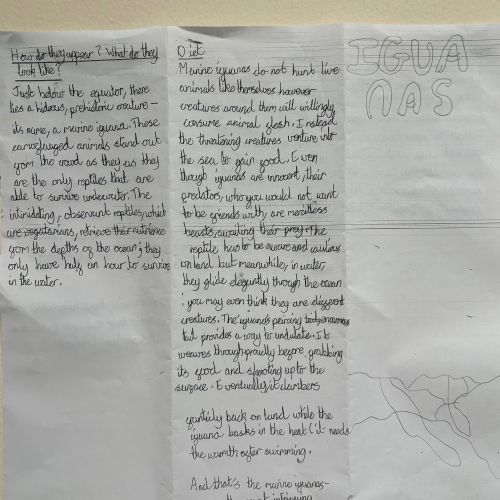 How do they appear? What do they
look like?
Just below the equator, there
lies a hideous, prehistoric creature –
its name, a marine iguana. These
camofluged animals stand out
from the crowd as they as they
are the only reptiles that are
able to survive underwater. The
intimidating, observant reptiles, which
are vegatarians, retrieve their nutrience
from the depths of the ocean; they
only have half an hour to survive
in the water.
Diet
Marine iguanas do not hunt live
animals like themselves however
creatures around them will willingly
consume animal flesh. Instead
the threatening creatures venture into
the sea to gain food. Even
though iguanas are innocent, their
predators, who you would not want
to be friends with, are merciless
beasts, awaiting their prey. The
reptile has to be aware and cautious
on land but meanwhile, in water
they glide elegantly through the ocean
; you may even think they are different
creatures. The iguana's
tail provides a way to undulate. It
weaves through proudly before grabbing
its food and shooting up to the
surface. Eventually, it clambers
back on land while the
iguana basks in the heat (it needs
the warmth after swimming.
And that's the marine iguanas –
the most intriguing
IGUA
NAS